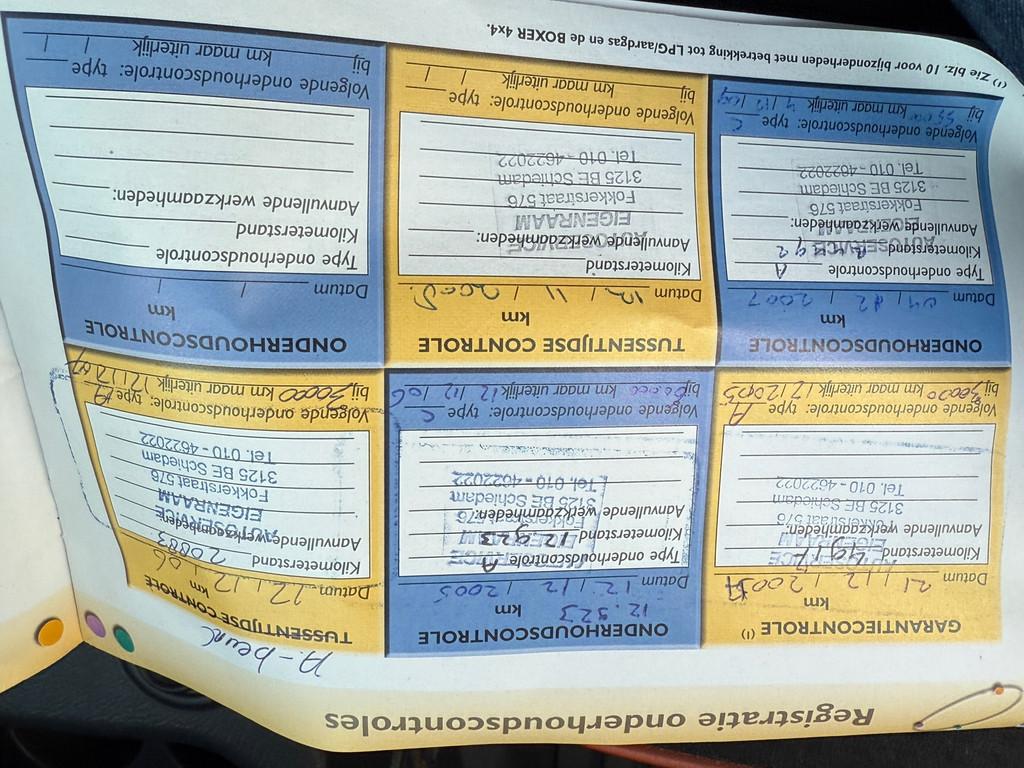 Registratie onderhoudscontroles
GARANTIECONTROLE (1)
km
Datum 21 / 12 / 2004
Kilometerstand 4917
Aanvullende werkzaamheden:
Fokkerstraat 576
3125 BE Schiedam
Tel. 010 - 4622022
Volgende onderhoudscontrole: type A
bij 30000 km maar uiterlijk 12 / 2005
ONDERHOUDSCONTROLE
12.923 km
Datum 12 / 12 / 2005
Type onderhoudscontrole A
Kilometerstand 12923
Aanvullende werkzaamheden:
Fokkerstraat 576
3125 BE Schiedam
Tel. 010 - 4622022
Volgende onderhoudscontrole: type C
bij km maar uiterlijk 12 / 12 / 06
A-beurt
TUSSENTIJDSE CONTROLE
km
Datum 12 / 12 / 06
Kilometerstand 20883
Aanvullende werkzaamheden:
AUTOSERVICE
EIGENRAAM
Fokkerstraat 576
3125 BE Schiedam
Tel. 010 - 4622022
Volgende onderhoudscontrole: type A
bij 30000 km maar uiterlijk 12 / 12 / 07
ONDERHOUDSCONTROLE
km
Datum 04 / 12 / 2007
Type onderhoudscontrole A
Kilometerstand
Aanvullende werkzaamheden:
AUTOSERVICE
EIGENRAAM
Fokkerstraat 576
3125 BE Schiedam
Tel. 010 - 4622022
Volgende onderhoudscontrole: type C
bij km maar uiterlijk
TUSSENTIJDSE CONTROLE
km
Datum 12 / 11 / 2008
Kilometerstand
Aanvullende werkzaamheden:
AUTOSERVICE
EIGENRAAM
Fokkerstraat 576
3125 BE Schiedam
Tel. 010 - 4622022
Volgende onderhoudscontrole: type
bij km maar uiterlijk / /
ONDERHOUDSCONTROLE
km
Datum / /
Type onderhoudscontrole
Kilometerstand
Aanvullende werkzaamheden:
Volgende onderhoudscontrole: type
bij km maar uiterlijk / /
(1) Zie blz. 10 voor bijzonderheden met betrekking tot LPG/aardgas en de BOXER 4x4.